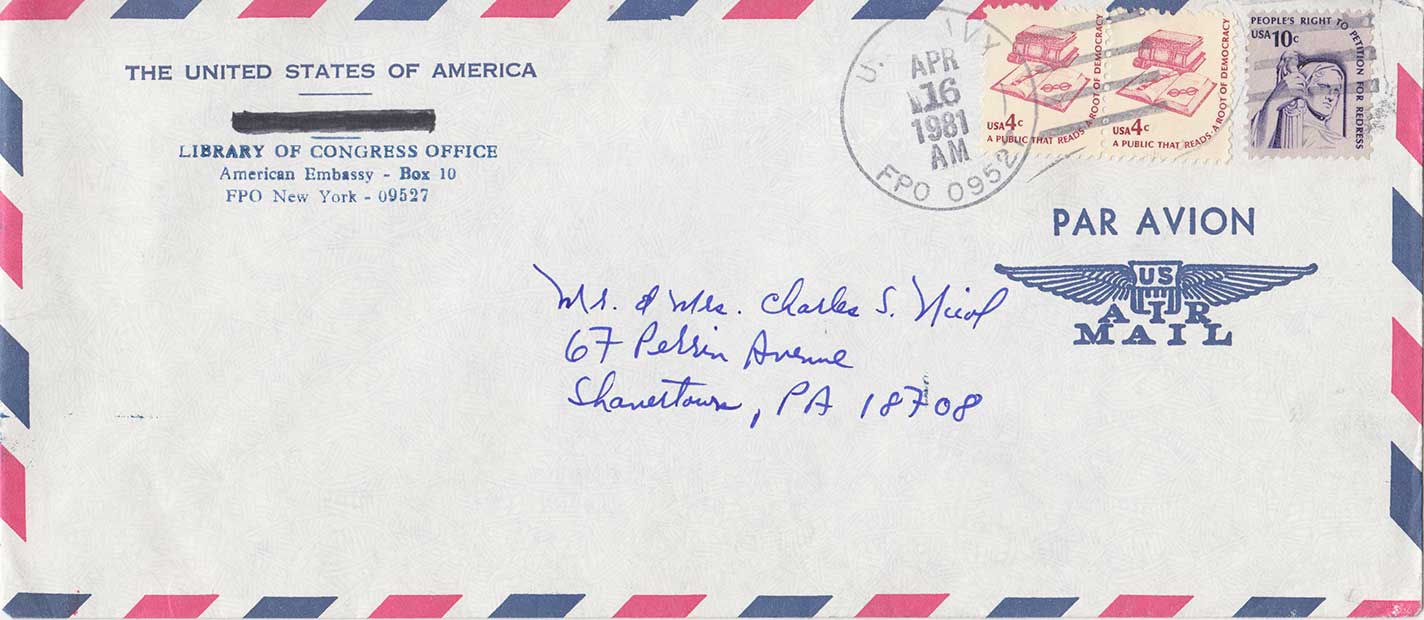 THE UNITED STATES OF AMERICA
LIBRARY OF CONGRESS OFFICE
American Embassy - Box 10
FPO New York - 09527
APR
16
1981
AM
FPO 0952
USA 4c
A PUBLIC THAT READS · A ROOT OF DEMOCRACY
USA 4c
A PUBLIC THAT READS · A ROOT OF DEMOCRACY
PEOPLE'S RIGHT TO PETITION FOR REDRESS
USA 10c
PAR AVION
US
AIR
MAIL
Mr. & Mrs. Charles S. Nicol
67 Perrin Avenue
Shavertown, PA 18708